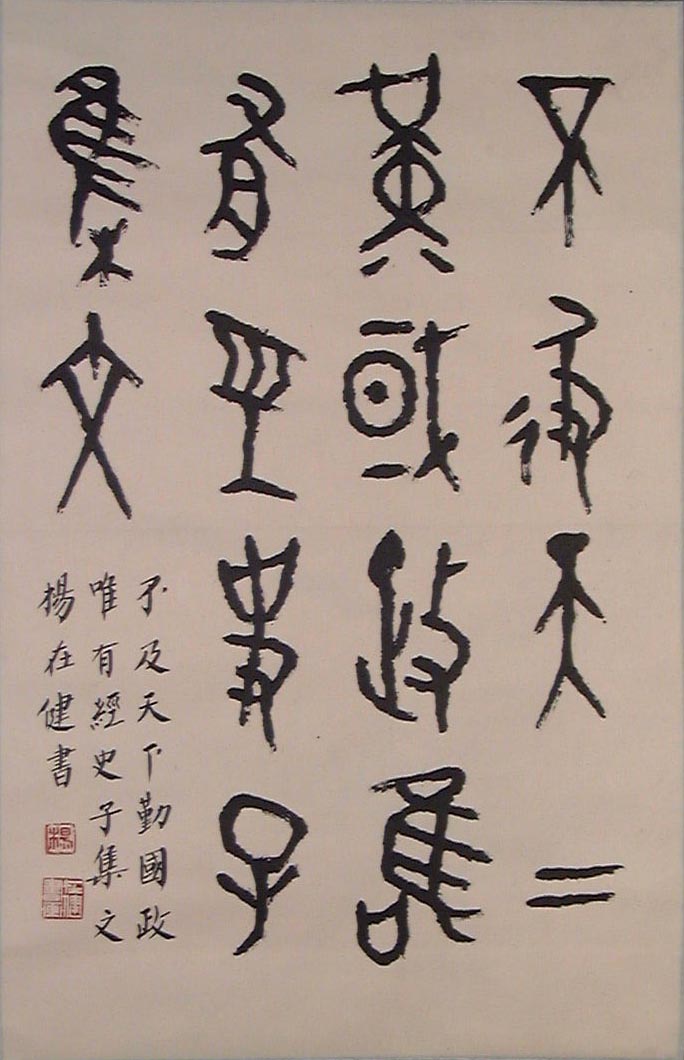 不及天下
勤國政唯
有經史子
集文
不及天下勤國政
唯有經史子集文
楊在健書
楊